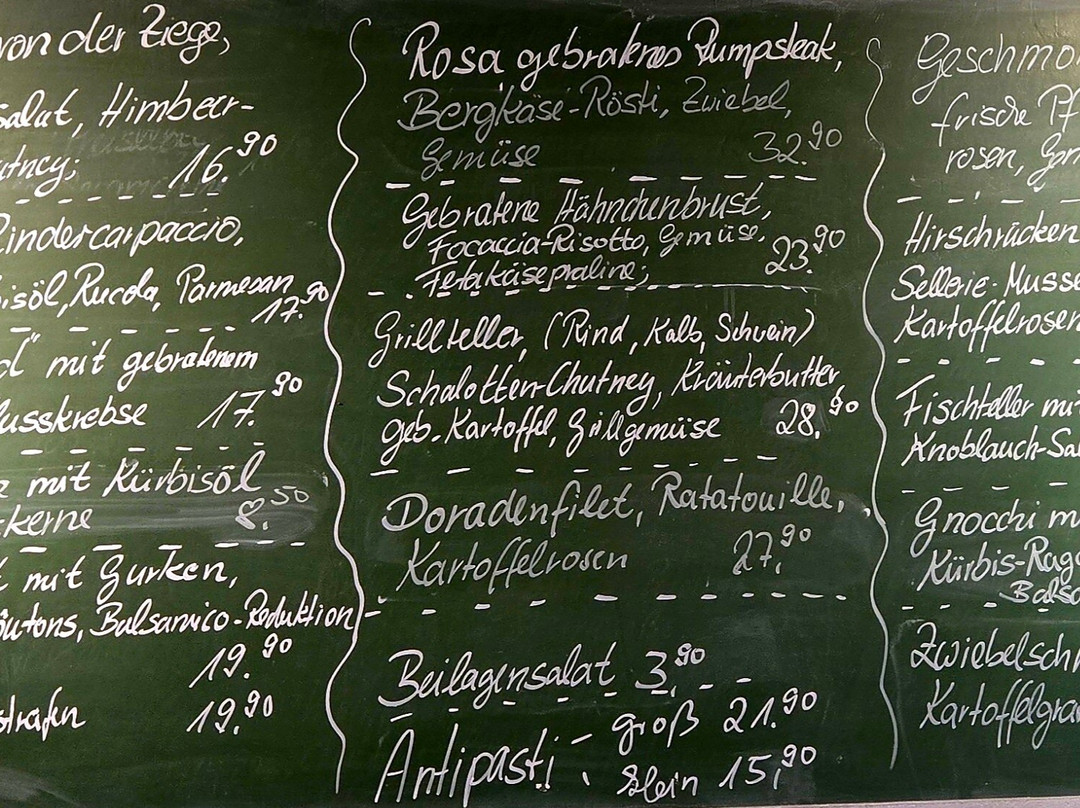 von der Ziege,
salat, Himbeer-
utney; 16.90
Rindercarpaccio,
isöl, Rucola, Parmesan
17.90
d" mit gebratenem
lusskrebse 17.90
mit Kürbisöl
kerne 8.50
mit Gurken,
outons, Balsamico-Reduktion
19.90
strafen 19.90
Rosa gebratenes Rumpsteak,
Bergkäse-Rösti, Zwiebel,
Gemüse 32.90
Gebratene Hähnchenbrust,
Focaccia-Risotto, Gemüse,
Fetakäsepraline; 23.90
Grillteller, (Rind, Kalb, Schwein)
Schalotten-Chutney, Kräuterbutter,
geb. Kartoffel, Grillgemüse 28.90
Doradenfilet, Ratatouille,
Kartoffelrosen 27.90
Beilagensalat 3.90
Antipasti - groß 21.90
klein 15,90
Geschmo
frische Pf
rosen, Gem
Hirschrücken
Sellerie-Musse
Kartoffelrosen
Fischteller mit
Knoblauch-Sa
Gnocchi m
Kürbis-Rago
Balsa
Zwiebelschn
Kartoffelgra